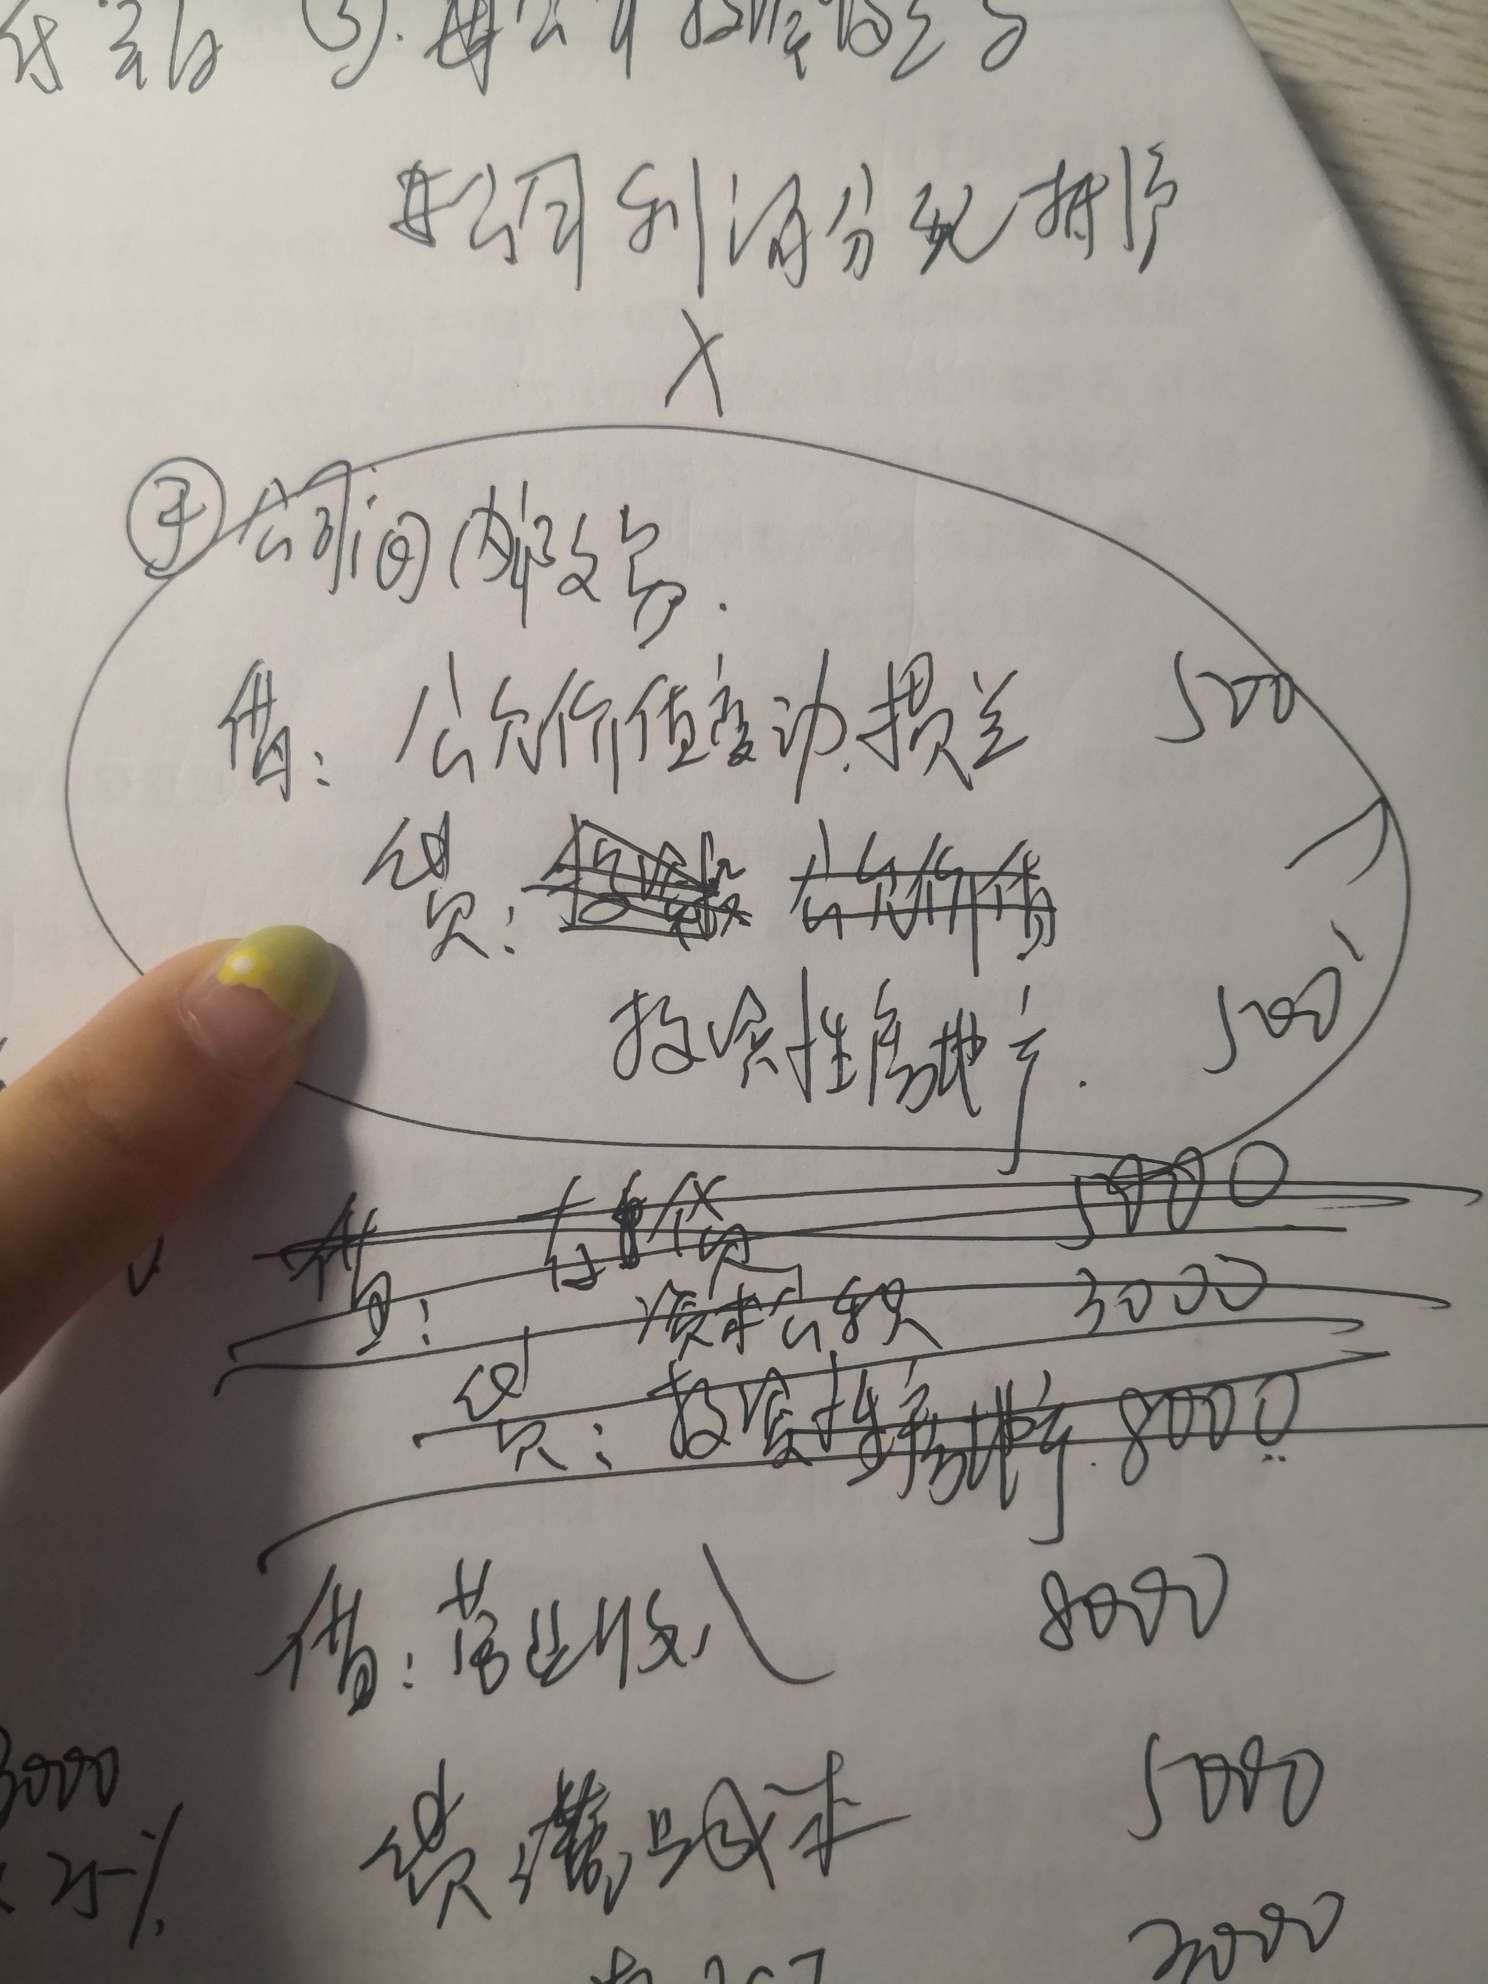 ③.母公司投资收益与
母公司利润分配抵销
X
④ 公司间内部交易.
借: 公允价值变动.损益 500
贷: 公允价值
投资性房地产. 500
借: 存货 5000
资本公积 3000
贷: 投资性房地产. 8000
借: 营业收入 8000
3000
贷: 营业成本 5000
25%
3000